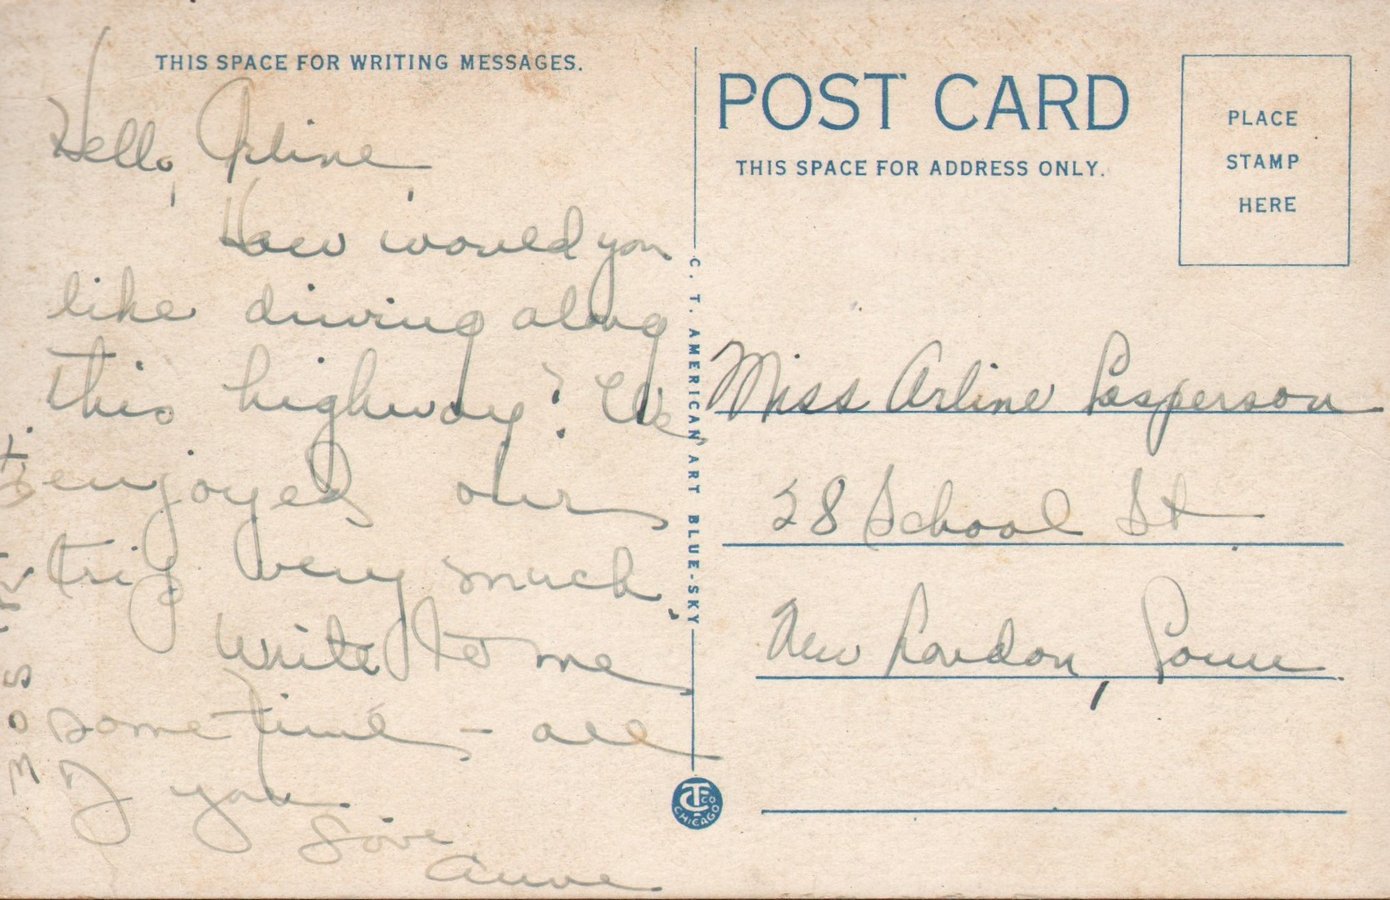 THIS SPACE FOR WRITING MESSAGES.
Hello, Arline,
How would you
like driving along
this highway? We
enjoyed our
trip very much.
Write to me
sometime - all
of you.
Love
Anne
305
St.
POST CARD
THIS SPACE FOR ADDRESS ONLY.
PLACE
STAMP
HERE
C. T. AMERICAN ART BLUE-SKY
Miss Arline Casperson
28 School St.
New London, Conn
CT CO
CHICAGO